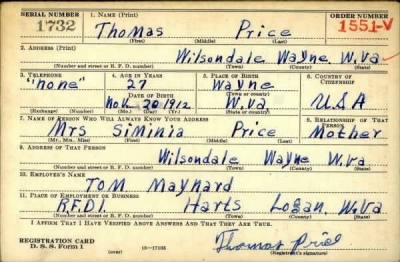 SERIAL NUMBER 1. NAME (Print) ORDER NUMBER
1732 Thomas Price 1551-V
(First) (Middle) (Last)
2. ADDRESS (Print)
Wilsondale Wayne W.Va
(Number and street or R. F. D. number) (Town) (County) (State)
3. TELEPHONE 4. AGE IN YEARS 5. PLACE OF BIRTH 6. COUNTRY OF CITIZENSHIP
"none" 27 Wayne
DATE OF BIRTH (Town or county)
Nov. 20 1912 W.Va U.S.A
(Exchange) (Number) (Mo.) (Day) (Yr.) (State or country)
7. NAME OF PERSON WHO WILL ALWAYS KNOW YOUR ADDRESS 8. RELATIONSHIP OF THAT PERSON
Mrs Siminia Price Mother
(Mr., Mrs., Miss) (First) (Middle) (Last)
9. ADDRESS OF THAT PERSON
Wilsondale Wayne W.Va
(Number and street or R. F. D. number) (Town) (County) (State)
10. EMPLOYER'S NAME
Tom Maynard
11. PLACE OF EMPLOYMENT OR BUSINESS
R.F.D1. Harts Logan, W.Va
(Number and street or R. F. D. number) (Town) (County) (State)
I AFFIRM THAT I HAVE VERIFIED ABOVE ANSWERS AND THAT THEY ARE TRUE.
REGISTRATION CARD
D. S. S. Form 1 (over) 16—17105 Thomas Price
(Registrant's signature)